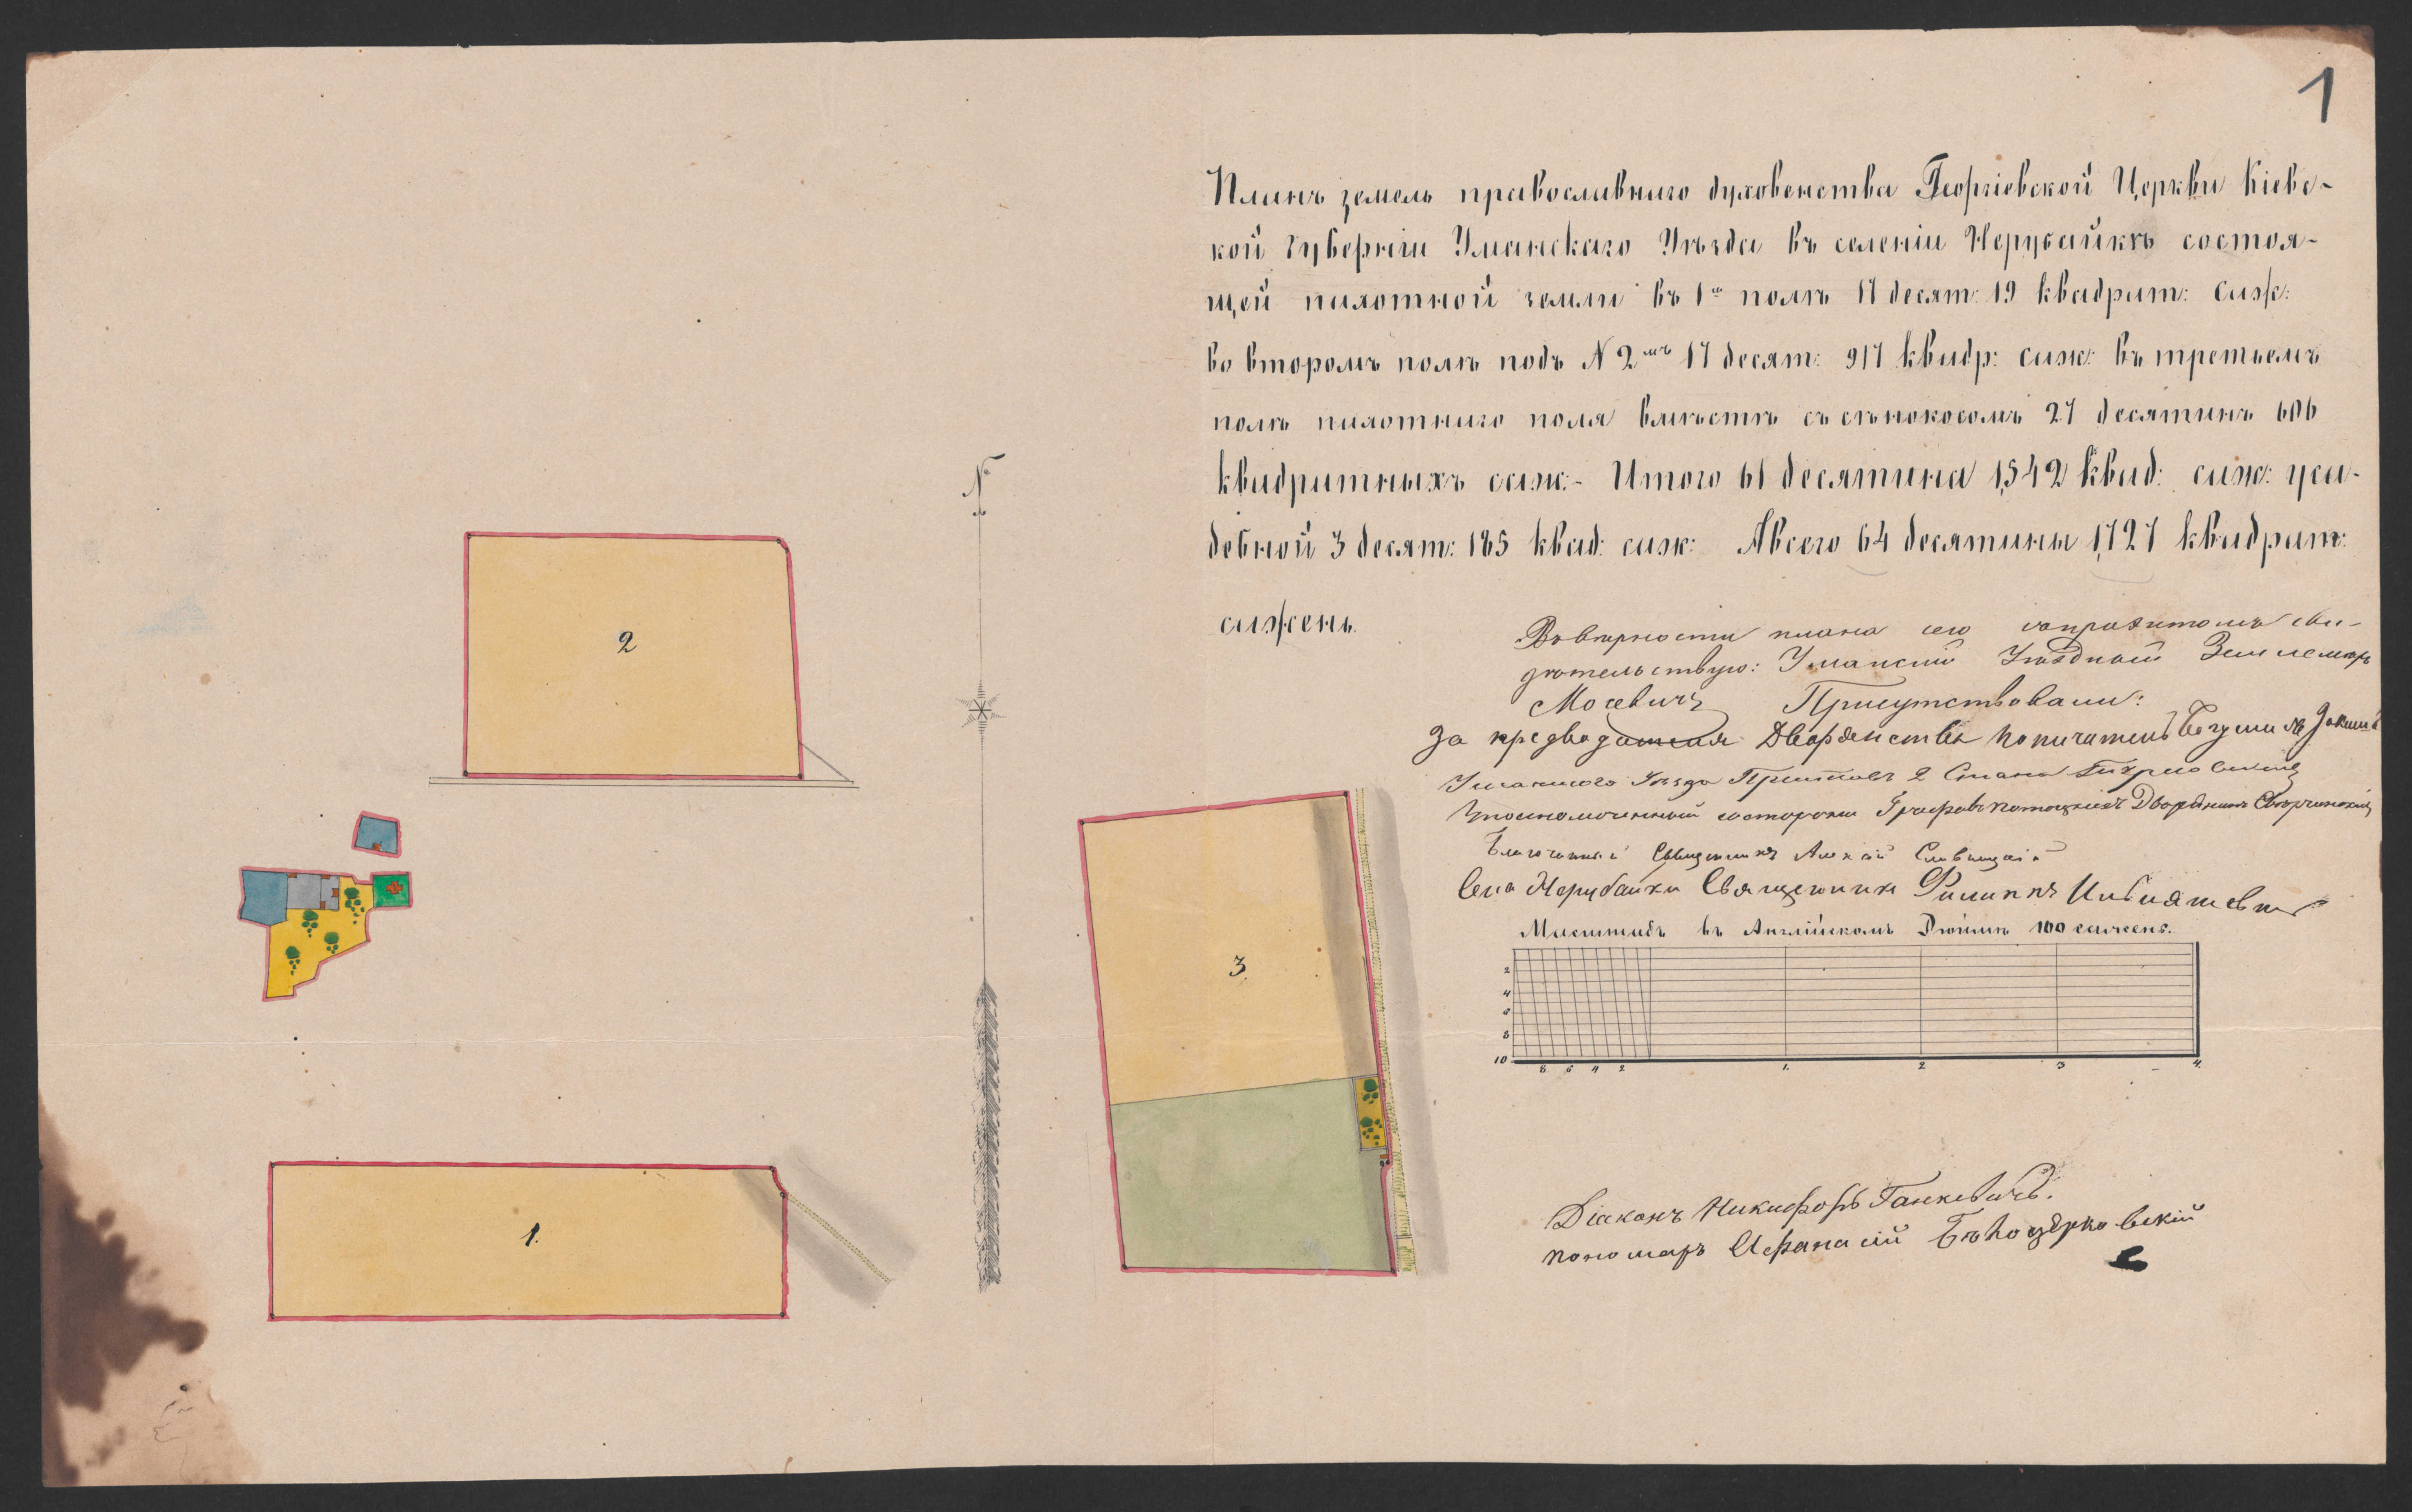 1
Планъ земель православнаго духовенства Георгіевской Церкви Кіевс-
кой Губерніи Уманскаго Уѣзда въ селеніи Нерубайкѣ состоя-
щей пахотной земли въ 1мъ полѣ 17 десят: 19 квадрат: Саж:
во второмъ полѣ подъ N 2мъ 17 десят: 917 квадр: саж: въ третьемъ
полѣ пахотнаго поля вмѣстѣ съ сѣнокосомъ 27 десятинъ 606
квадратныхъ саж:- Итого 61 десятина 1,542 квад: саж: уса-
дебной 3 десят: 185 квад: саж: А всего 64 десятины 1,727 квадрат:
сажень.
Въ вѣрности плана сего свѣ-
дѣтельствую: Уманскій Уѣздный Землемѣръ
Мосевичъ Присутствовали:
За предводителя Дворянства Попичитель
Уманскаго Уѣзда Приставъ 2 Стана
Уполномоченный состороны Графовъ Потоцкихъ Дворянинъ
Благочинный Священникъ Алексій
Села Нерубайки Священник Филиппъ
Масштабъ въ Англійскомъ Дюймѣ 100 сажень.
2
4
6
8
10
8 6 4 2 1. 2 3 4.
Діаконъ Никифоръ Ганкевичъ.
пономарь Афанасій Бѣлоцерковскій
N
2
3.
1.